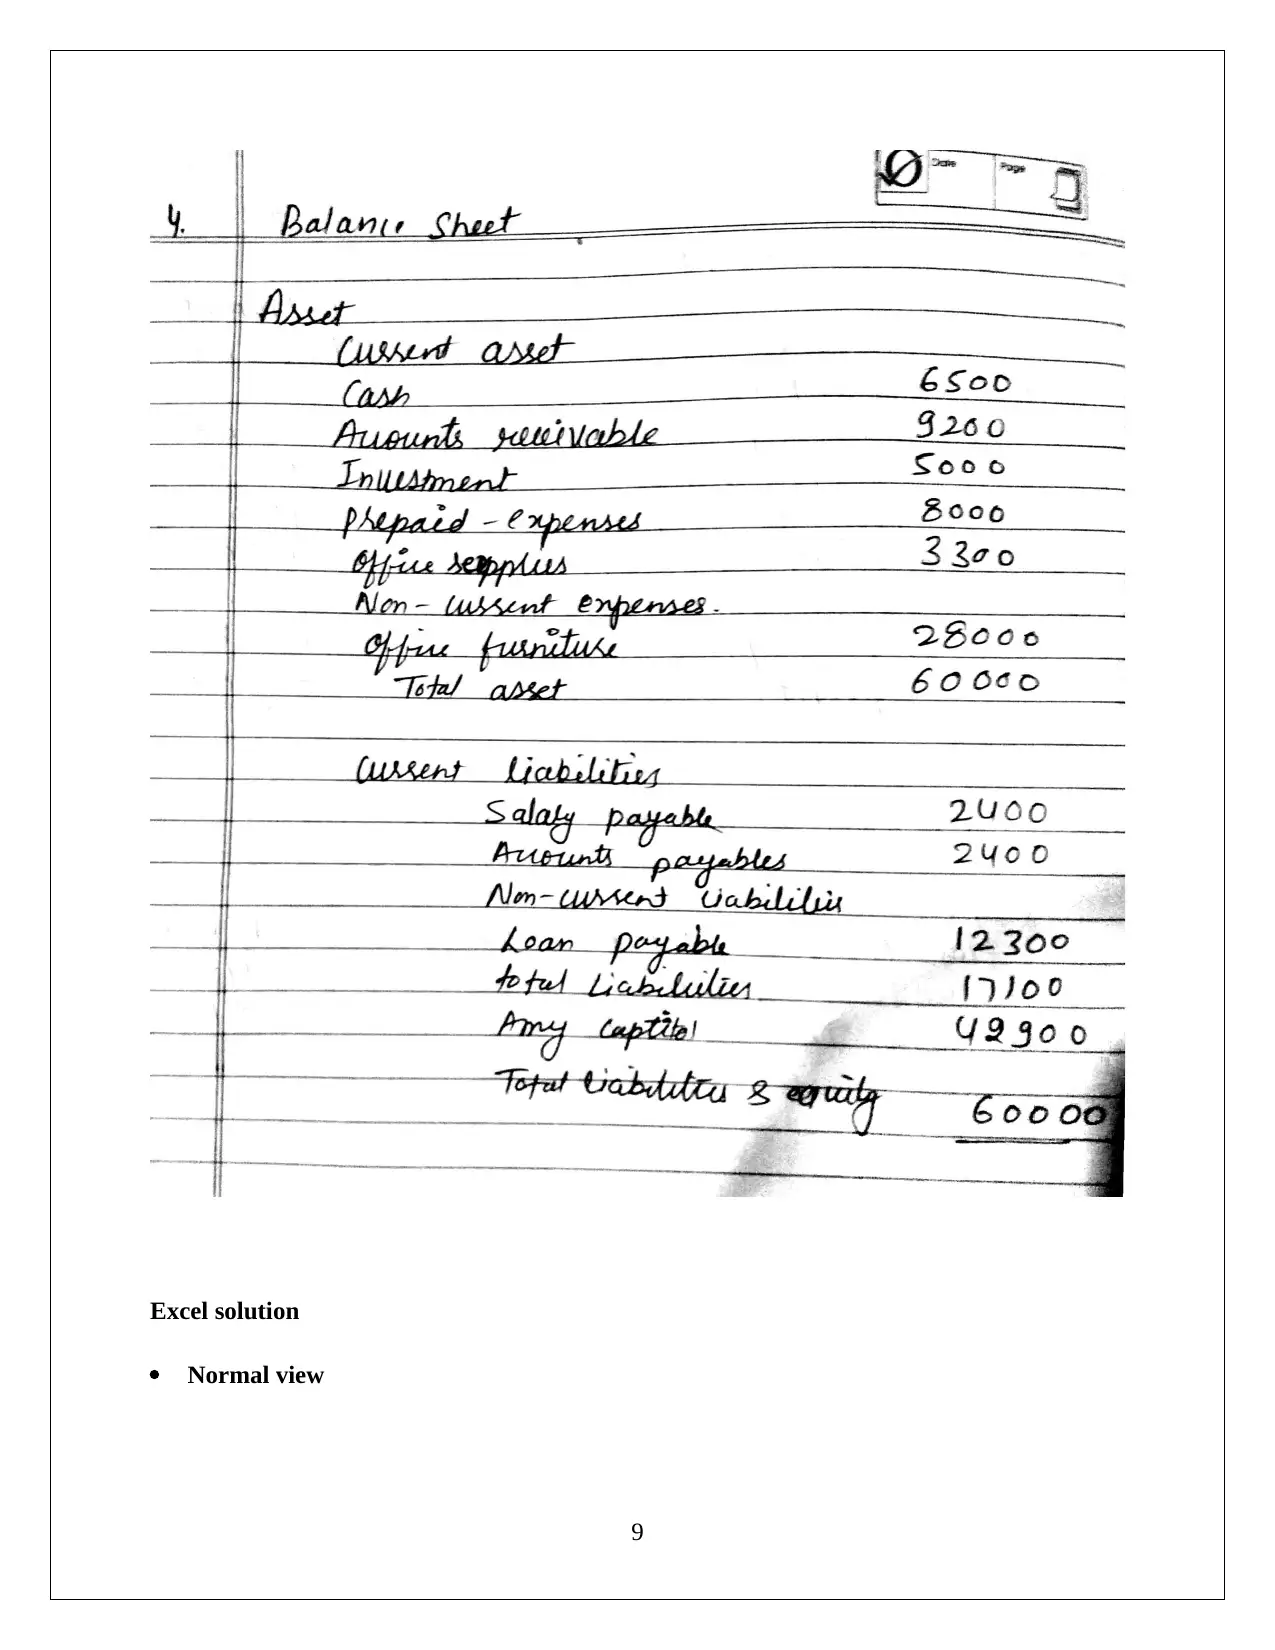 Date Page
4. Balance Sheet
Asset
Current asset
Cash 6500
Accounts receivable 9200
Investment 5000
Prepaid - expenses 8000
Office supplies 3300
Non - current expenses.
Office furniture 28000
Total asset 60000
Current liabilities
Salary payable 2400
Accounts payables 2400
Non-current liabilities
Loan payable 12300
total Liabilities 17100
Amy captital 42900
Total liabilities & equity 60000
Excel solution
• Normal view
9